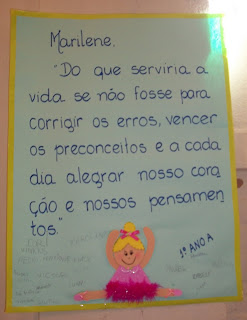 Marilene,
"Do que serviria a
vida se não fosse para
corrigir os erros, vencer
os preconceitos e a cada
dia alegrar nosso cora
ção e nossos pensamen
tos."
1º ANO A